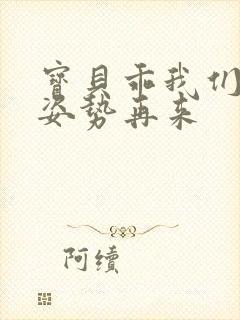 寶貝乖我们
姿势再来
阿續